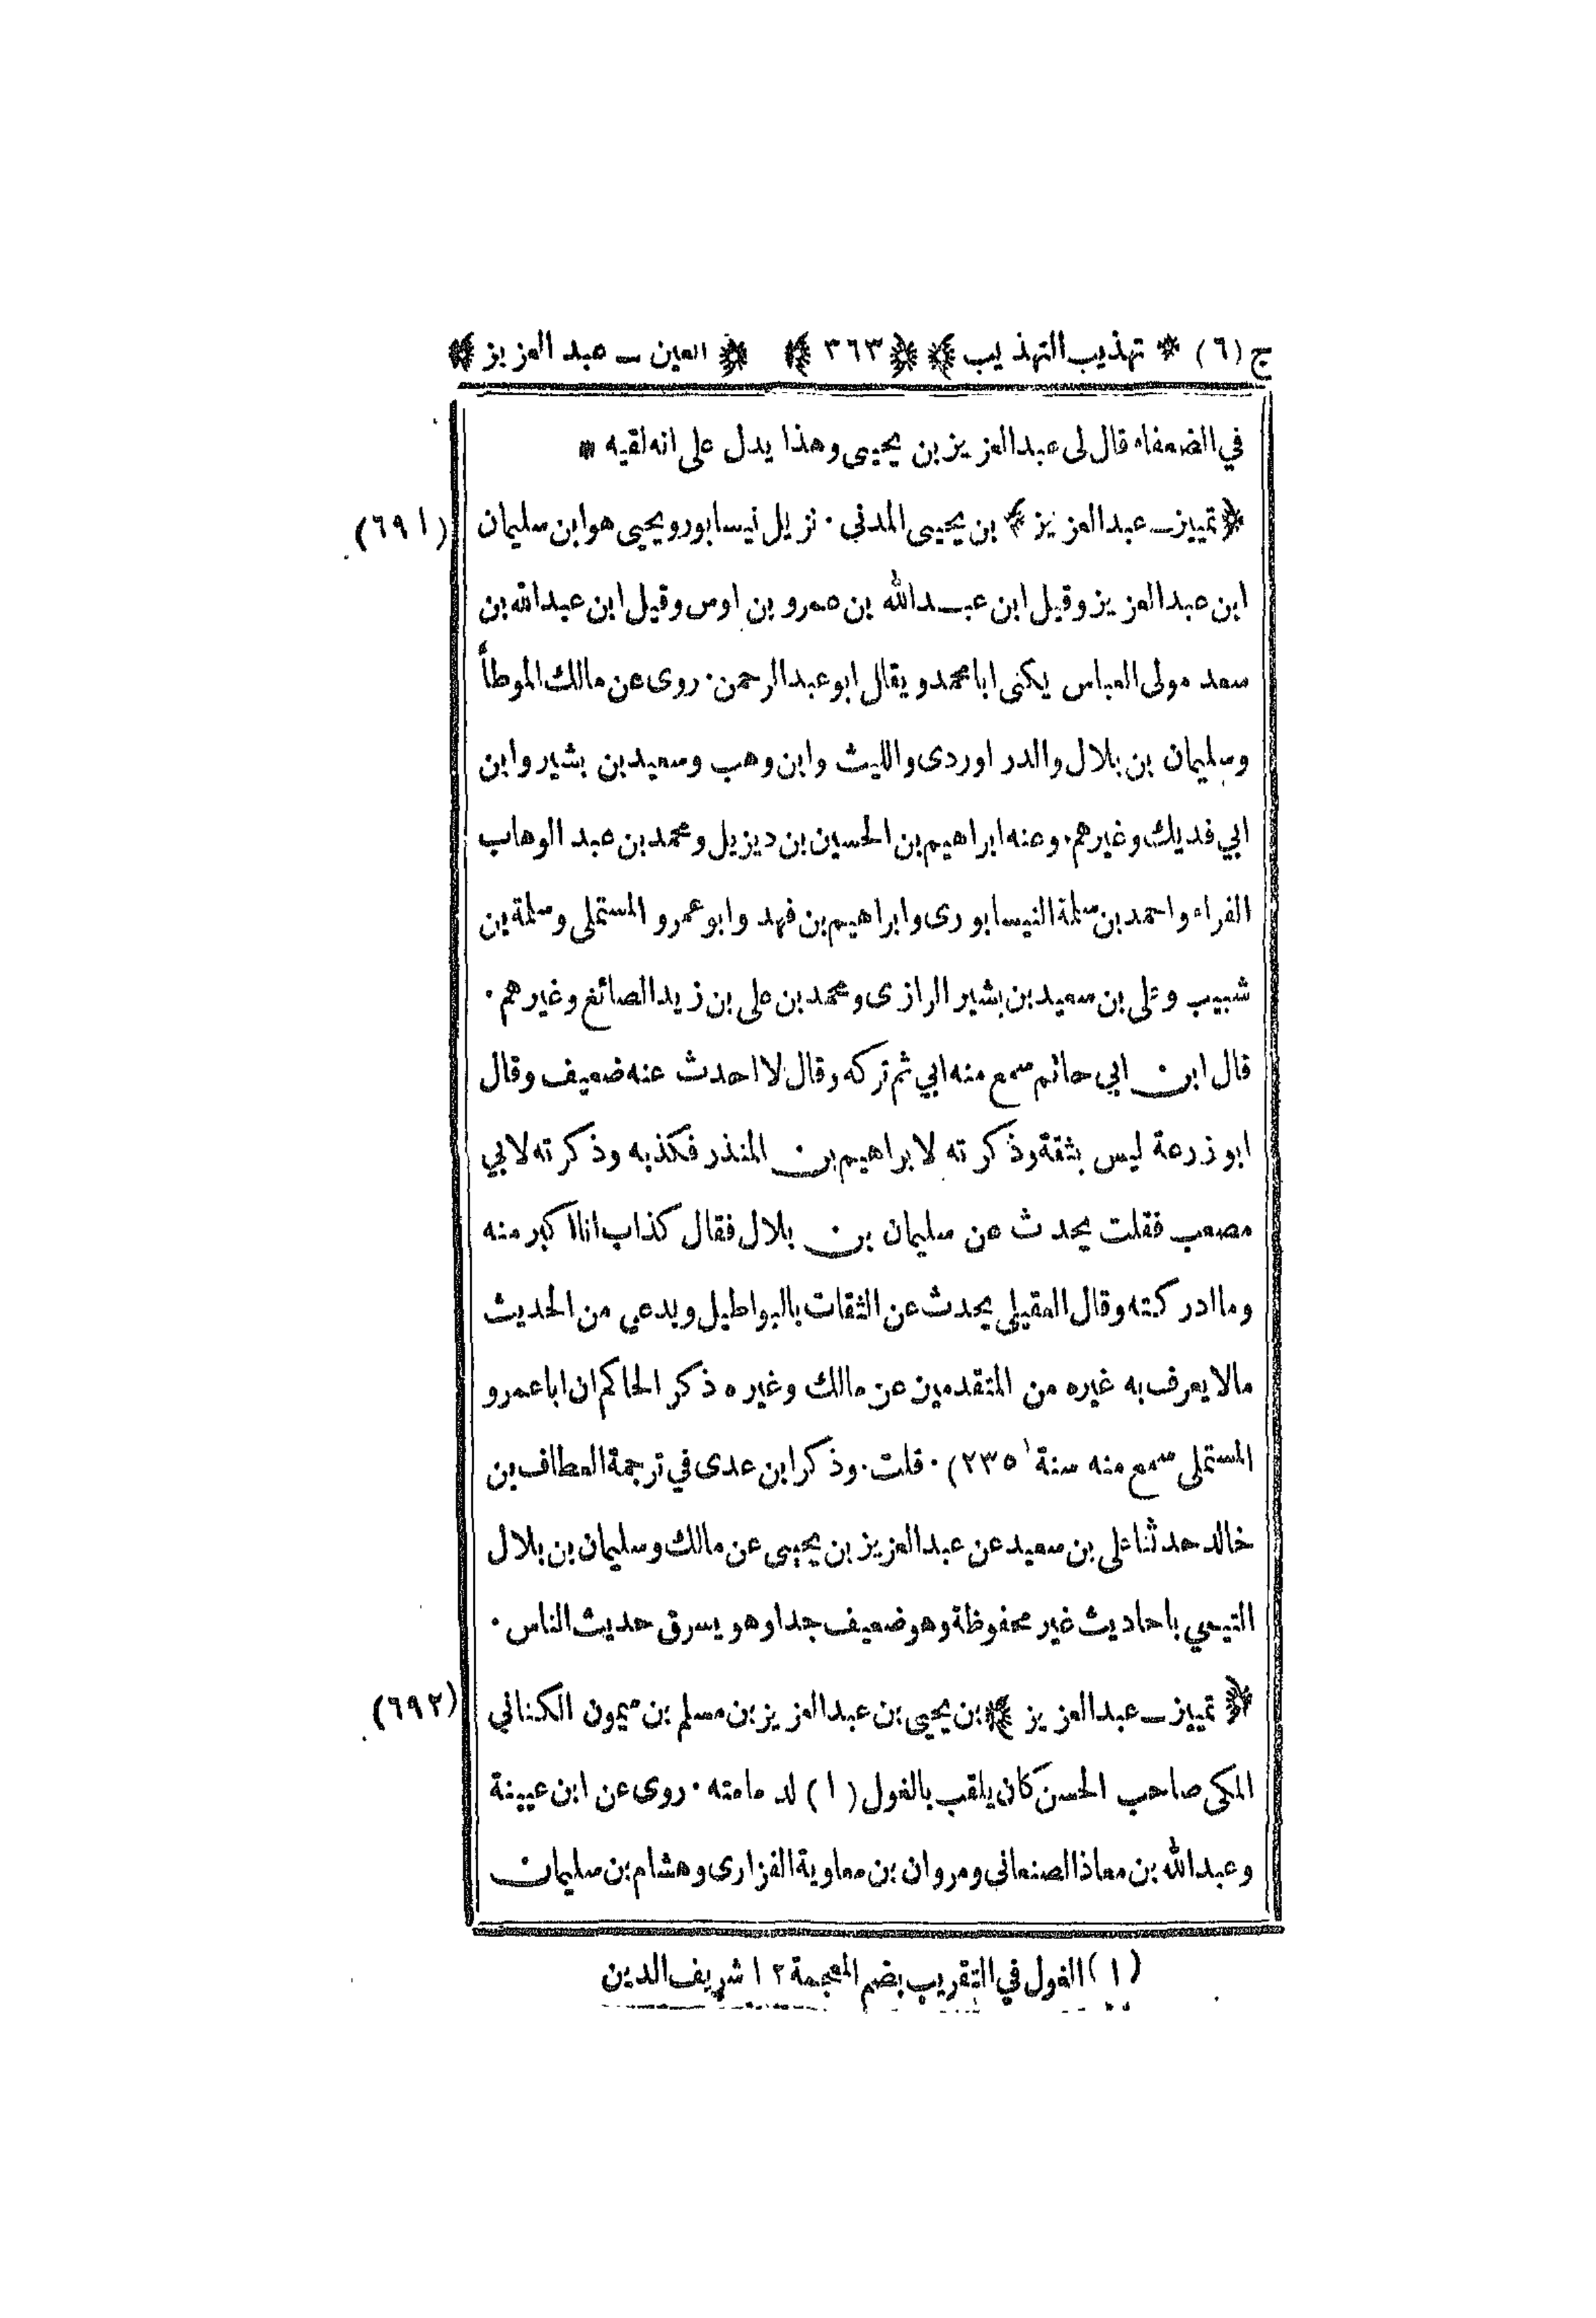 ج (٦) * تهذيب التهذيب ﴾ ﴿ ٣٦٣ ﴾ ﴿ العين ــ عبد العزيز ﴾
في الضعفاء قال لى عبد العزيز بن يحيى وهذا يدل على انه لقيه *
﴿ تمييز ــ عبد العزيز ﴾ بن يحيى المدني ٠ نزيل نيسابور ويحيى هو ابن سليمان (٦٩١)
ابن عبد العزيز وقيل ابن عبـد الله بن عمرو بن اوس وقيل ابن عبد الله بن
سعد مولى العباس يكنى ابا محمد ويقال ابو عبد الرحمن ٠ روى عن مالك الموطأ
وسليمان بن بلال والدراوردى والليث وابن وهب وسعيد بن بشير وابن
ابي فديك وغيرهم ٠ وعنه ابراهيم بن الحسين بن ديزيل ومحمد بن عبد الوهاب
الفراء واحمد بن سلمة النيسابورى وابراهيم بن فهد وابو عمرو المستملى وسلمة بن
شبيب وعلى بن سعيد بن بشير الرازى ومحمد بن على بن زيد الصائغ وغيرهم ٠
قال ابن ابي حاتم سمع منه ابي ثم تركه وقال لا احدث عنه ضعيف وقال
ابو زرعة ليس بثقة وذكرته لابراهيم بن المنذر فكذبه وذكرته لابي
مصعب فقلت يحدث عن سليمان بن بلال فقال كذاب انا اكبر منه
وما ادركته وقال العقيلي يحدث عن الثقات بالبواطيل ويدعي من الحديث
مالا يعرف به غيره من المتقدمين عن مالك وغيره ذكر الحاكم ان ابا عمرو
المستملى سمع منه سنة (٢٣٥) ٠ قلت ٠ وذكر ابن عدى في ترجمة العطاف بن
خالد حدثنا على بن سعيد عن عبد العزيز بن يحيى عن مالك وسليمان بن بلال
التيمي باحاديث غير محفوظة وهو ضعيف جدا وهو يسرق حديث الناس ٠
﴿ تمييز ــ عبد العزيز ﴾ بن يحيى بن عبد العزيز بن مسلم بن ميمون الكناني (٦٩٢)
المكى صاحب الحسن كان يلقب بالغول (١) لدمامته ٠ روى عن ابن عيينة
وعبد الله بن معاذ الصنعاني ومروان بن معاوية الفزارى وهشام بن سليمان
(١) الغول في التقريب بضم المعجمة ١٢ شريف الدين